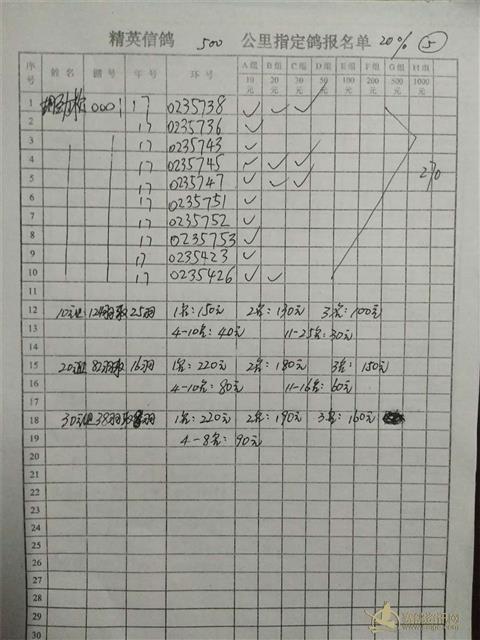 精英信鸽 500 公里指定鸽报名单 20% ⑤
序号 姓名 棚号 年号 环号 A组 B组 C组 D组 E组 F组 G组 H组
10元 20元 30元 50元 100元 200元 500元 1000元
1 0001 17 0235738 ✓ ✓ ✓
2 17 0235736 ✓
3 17 0235743 ✓
4 17 0235745 ✓ ✓ ✓
5 17 0235747 ✓ ✓ ✓
6 17 0235751 ✓
7 17 0235752 ✓
8 17 0235753 ✓
9 17 0235423 ✓
10 17 0235426 ✓ ✓
270
11
12 10元组 124羽取25羽 1名:150元 2名:130元 3名:100元
13 4-10名:40元 11-25名:30元
14
15 20元组 82羽取16羽 1名:220元 2名:180元 3名:150元
16 4-10名:80元 11-16名:60元
17
18 30元组38羽取8羽 1名:220元 2名:190元 3名:160元
19 4-8名:90元
20
21
22
23
24
25
26
27
28
29
30